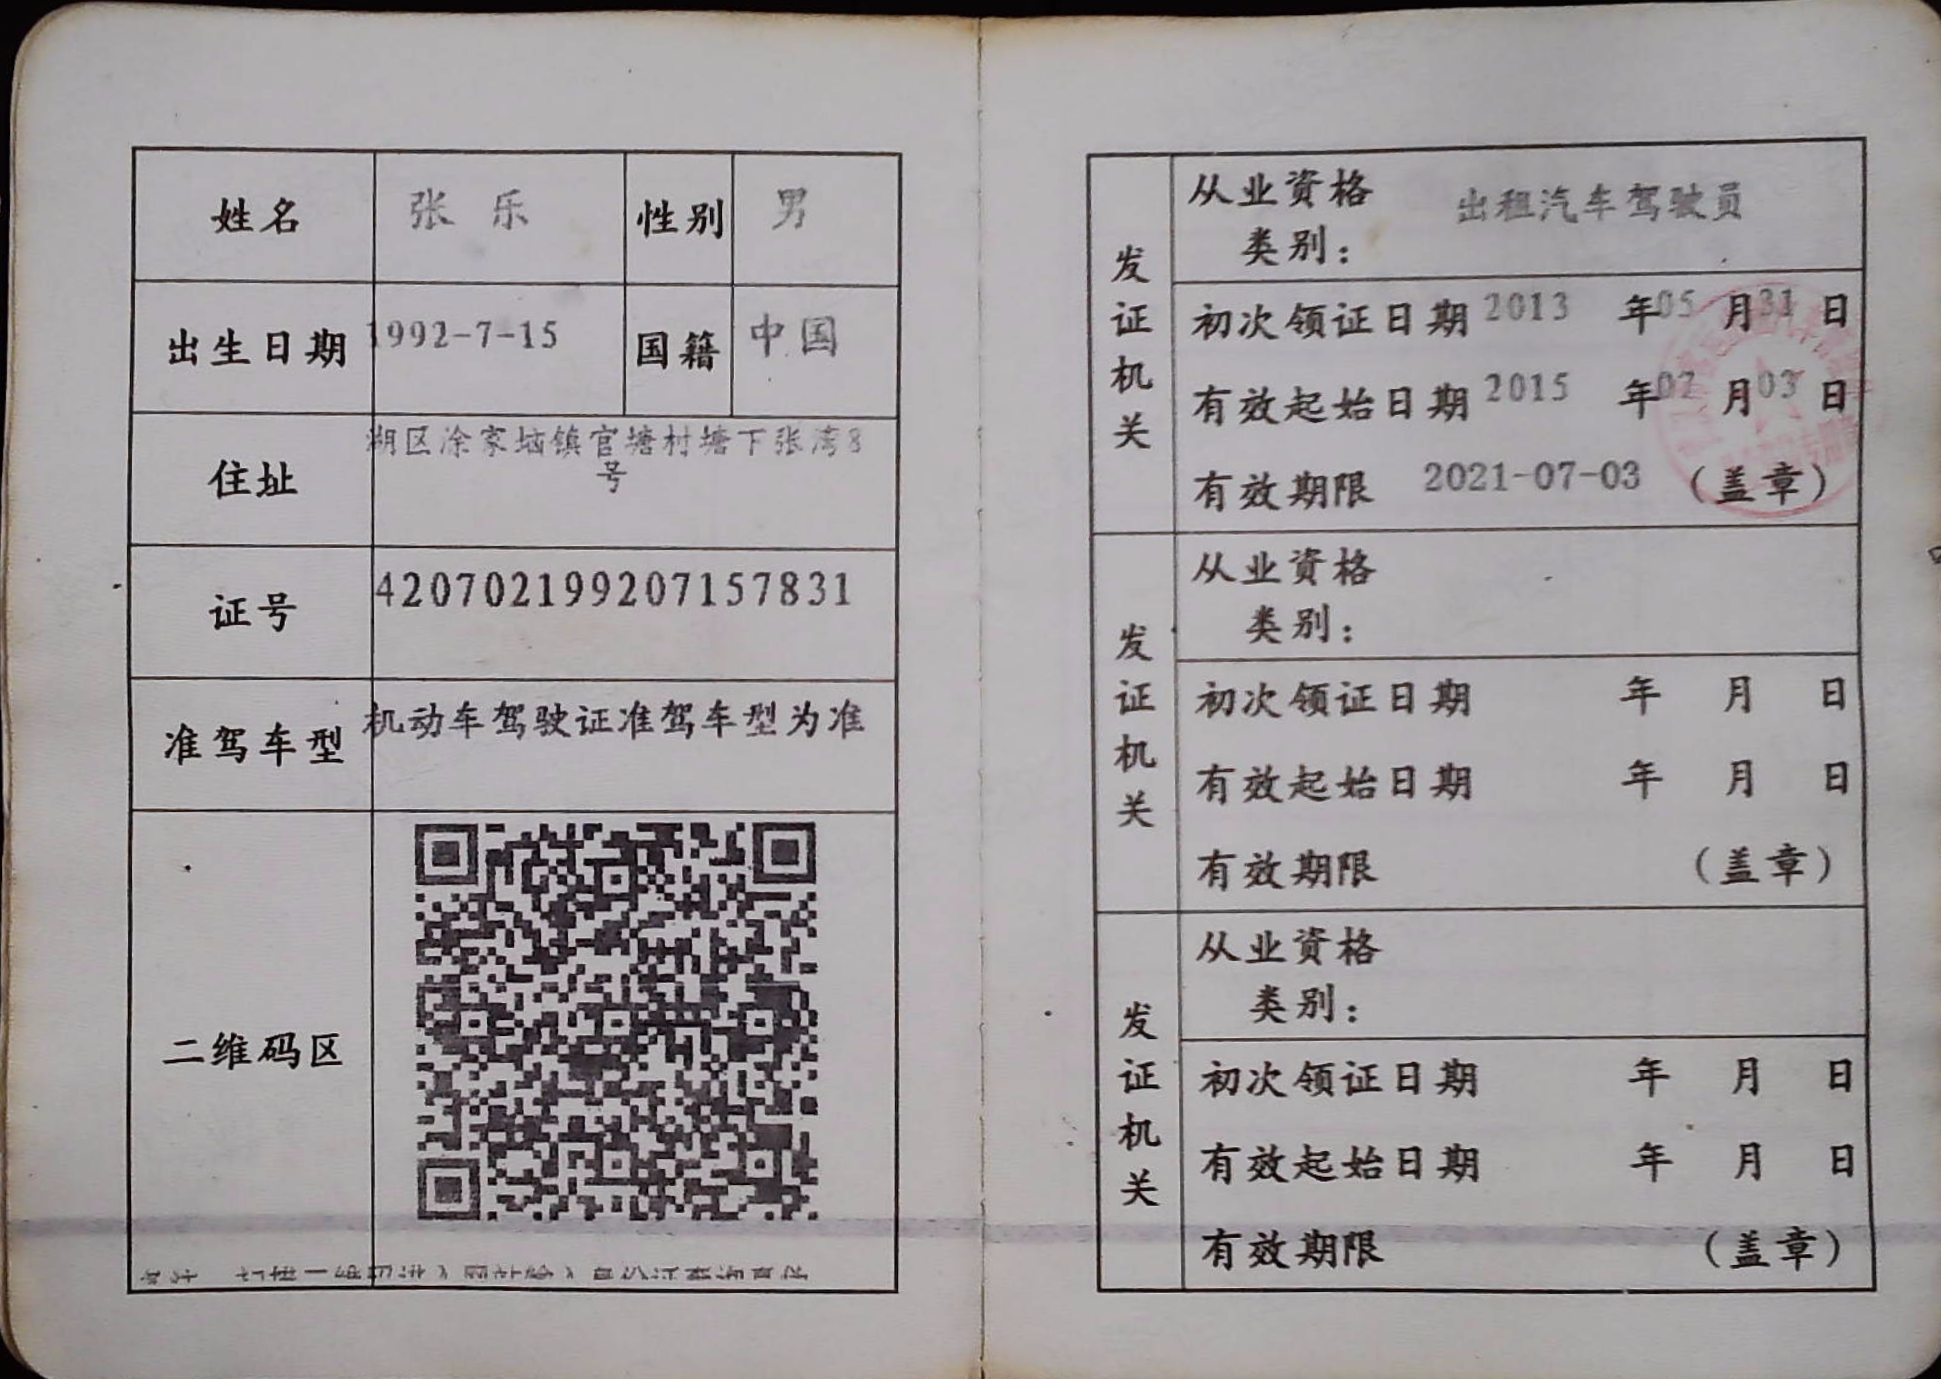 姓名 张乐 性别 男
出生日期 1992-7-15 国籍 中国
住址 湖区涂家垴镇官塘村塘下张湾8
号
证号 420702199207157831
准驾车型 机动车驾驶证准驾车型为准
二维码区
发证机关
从业资格
类别： 出租汽车驾驶员
初次领证日期 2013 年 05 月 31 日
有效起始日期 2015 年 07 月 03 日
有效期限 2021-07-03 （盖章）
发证机关
从业资格
类别：
初次领证日期 年 月 日
有效起始日期 年 月 日
有效期限 （盖章）
发证机关
从业资格
类别：
初次领证日期 年 月 日
有效起始日期 年 月 日
有效期限 （盖章）